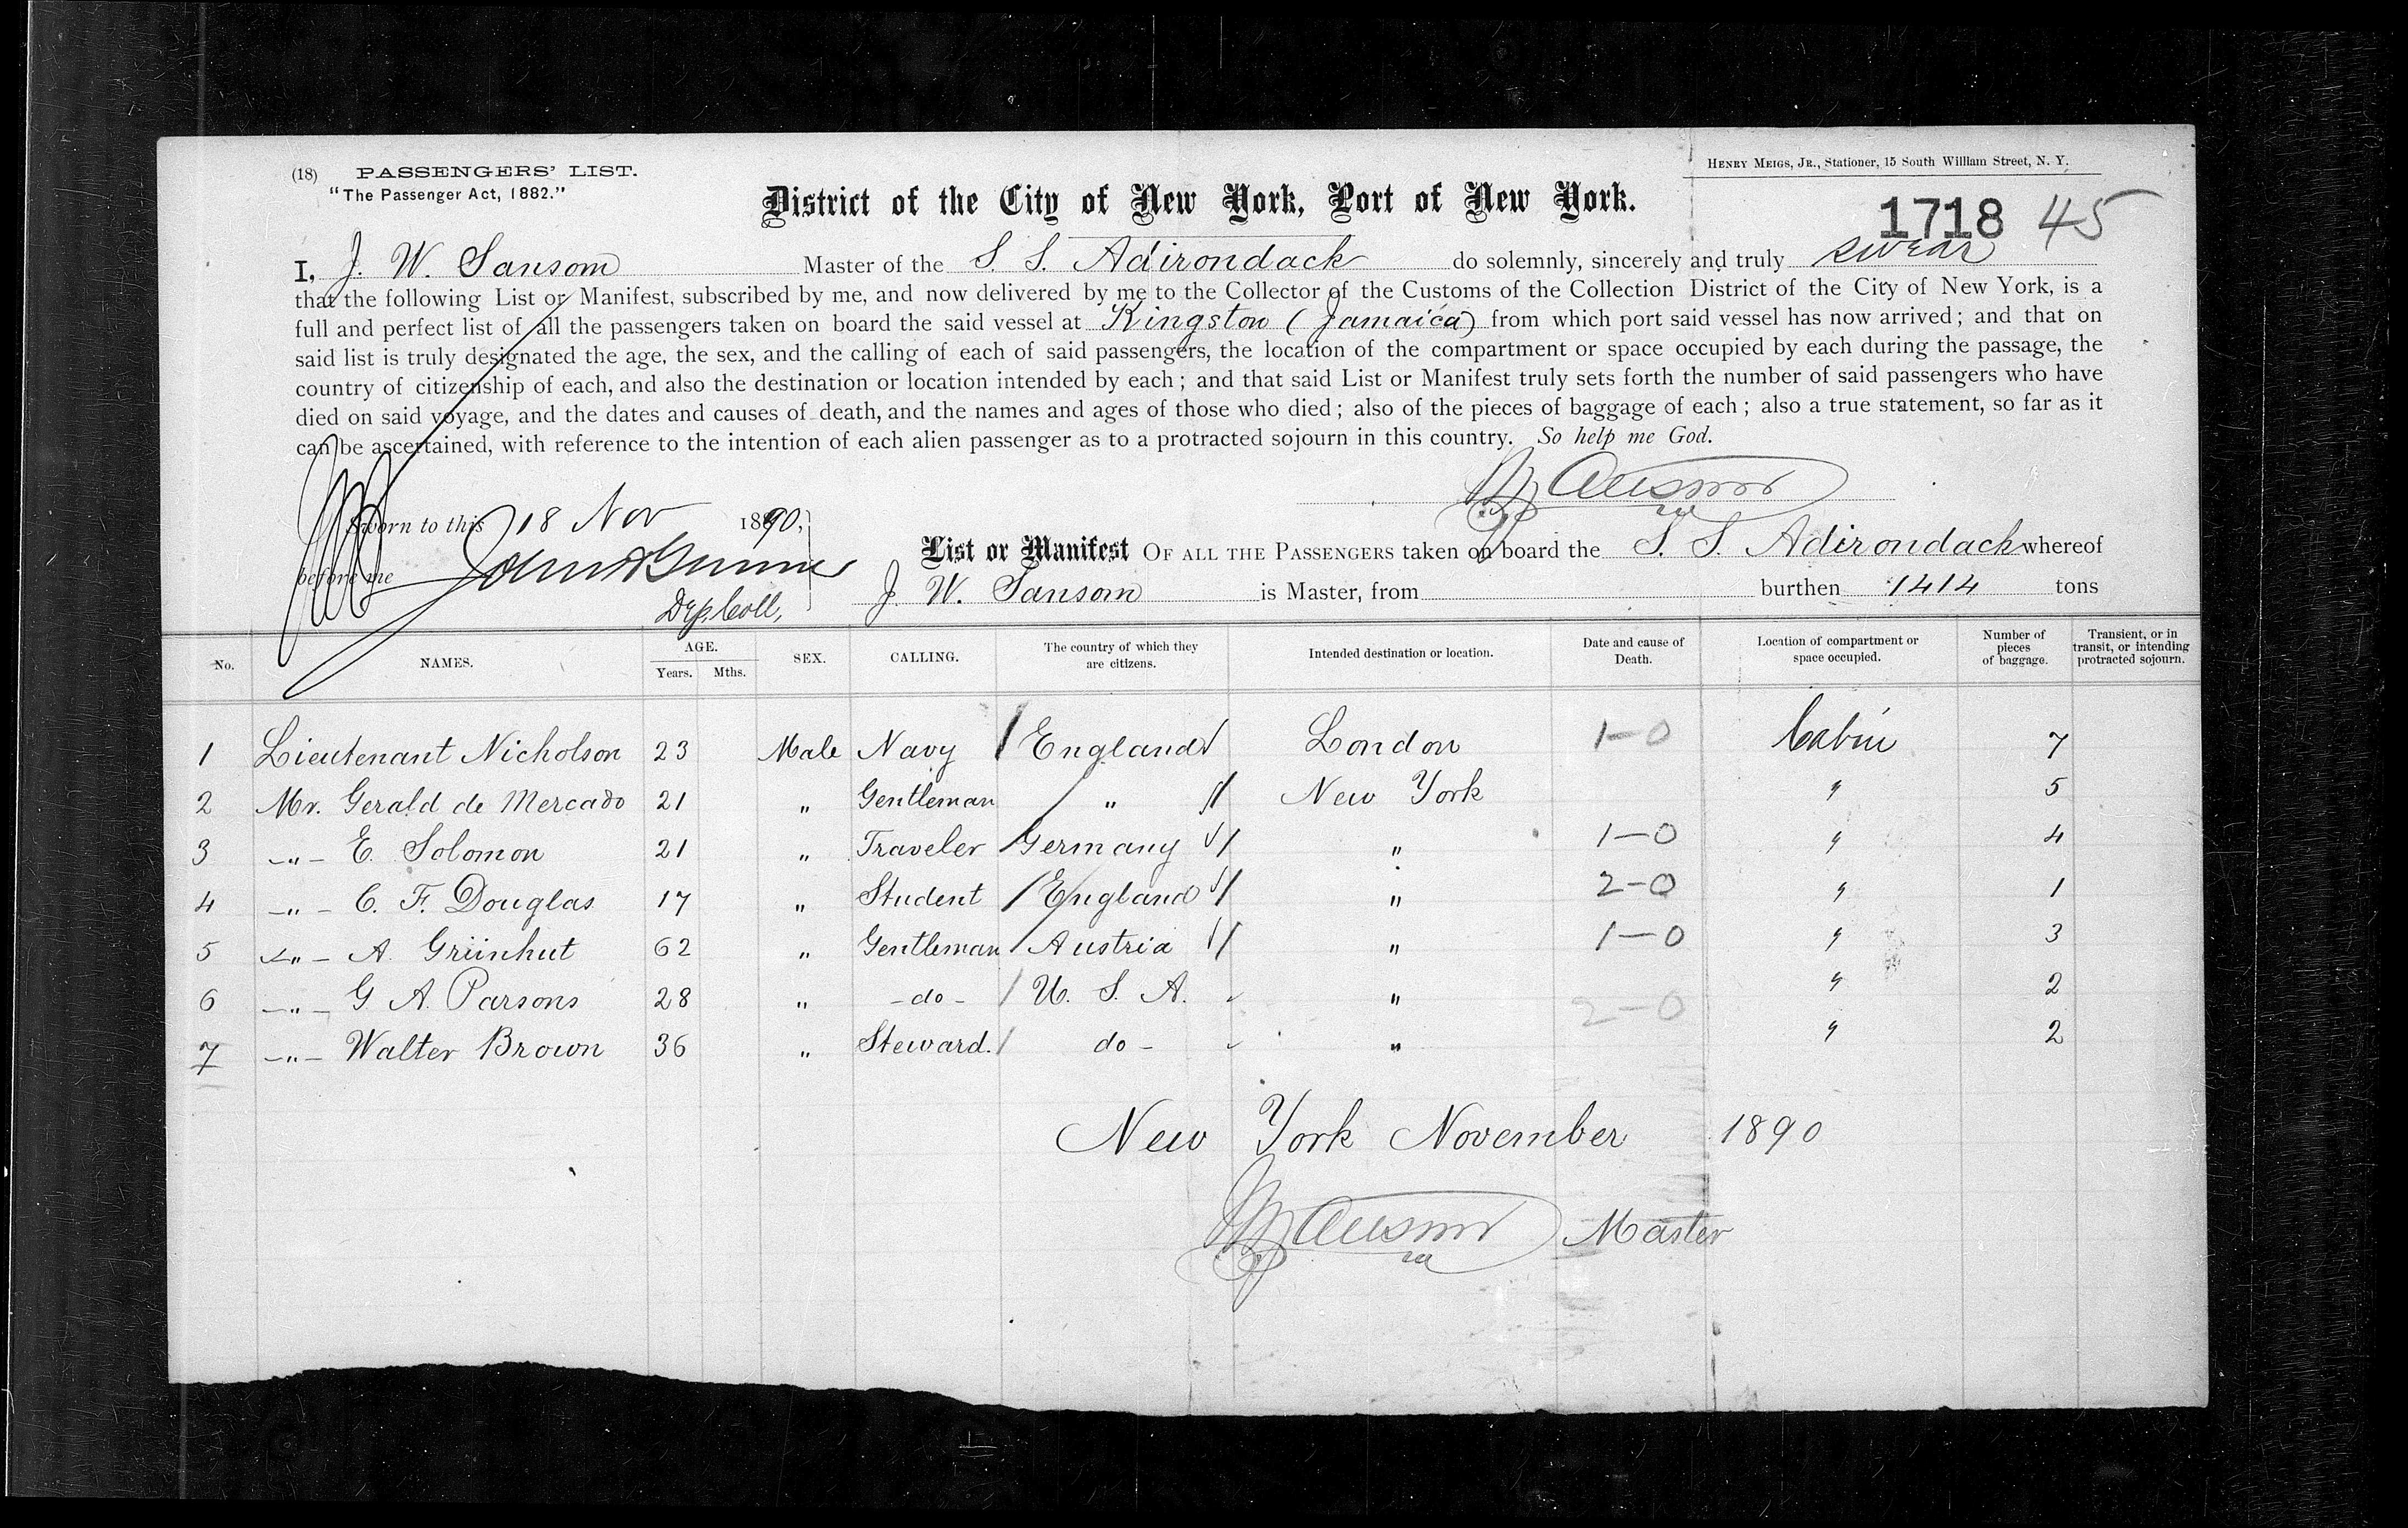 (18) PASSENGERS' LIST.
"The Passenger Act, 1882."
HENRY MEIGS, JR., Stationer, 15 South William Street, N. Y.
District of the City of New York, Port of New York.
1718 45
I, J. W. Sansom Master of the S. S. Adirondack do solemnly, sincerely and truly swear
that the following List or Manifest, subscribed by me, and now delivered by me to the Collector of the Customs of the Collection District of the City of New York, is a
full and perfect list of all the passengers taken on board the said vessel at Kingston (Jamaica) from which port said vessel has now arrived; and that on
said list is truly designated the age, the sex, and the calling of each of said passengers, the location of the compartment or space occupied by each during the passage, the
country of citizenship of each, and also the destination or location intended by each; and that said List or Manifest truly sets forth the number of said passengers who have
died on said voyage, and the dates and causes of death, and the names and ages of those who died; also of the pieces of baggage of each; also a true statement, so far as it
can be ascertained, with reference to the intention of each alien passenger as to a protracted sojourn in this country. So help me God.
Sworn to this 18 Nov 1890,
before me
Dep. Coll,
List or Manifest OF ALL THE PASSENGERS taken on board the S. S. Adirondack whereof
J. W. Sansom is Master, from burthen 1414 tons
No. NAMES. AGE. Years. Mths. SEX. CALLING. The country of which they are citizens. Intended destination or location. Date and cause of Death. Location of compartment or space occupied. Number of pieces of baggage. Transient, or in transit, or intending protracted sojourn.
1 Lieutenant Nicholson 23 Male Navy / England London 1-0 Cabin 7
2 Mr. Gerald de Mercado 21 " Gentleman / " New York " 5
3 -"- E. Solomon 21 " Traveler / Germany " 1-0 " 4
4 -"- C. F. Douglas 17 " Student / England " 2-0 " 1
5 -"- A. Grünhut 62 " Gentleman / Austria " 1-0 " 3
6 -"- G. A. Parsons 28 " -do- / U. S. A. " 2-0 " 2
7 -"- Walter Brown 36 " Steward. / do- " " 2
New York November 1890
Master